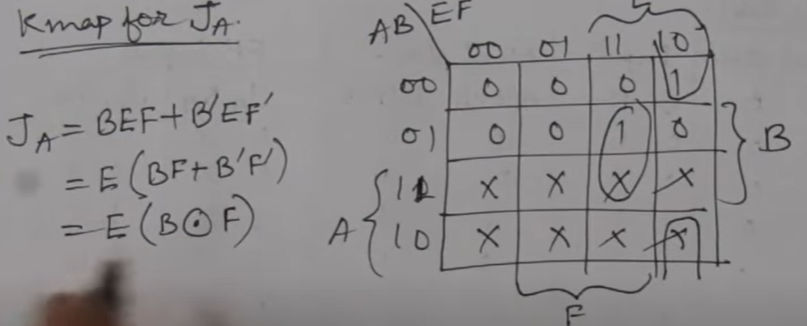 Kmap for J_A.
J_A = BEF + B'EF'
= E (BF + B'F')
= E (B⊙F)
AB \ EF
00 01 11 10
00 0 0 0 1
01 0 0 1 0
11 X X X X
10 X X X X
A
B
F